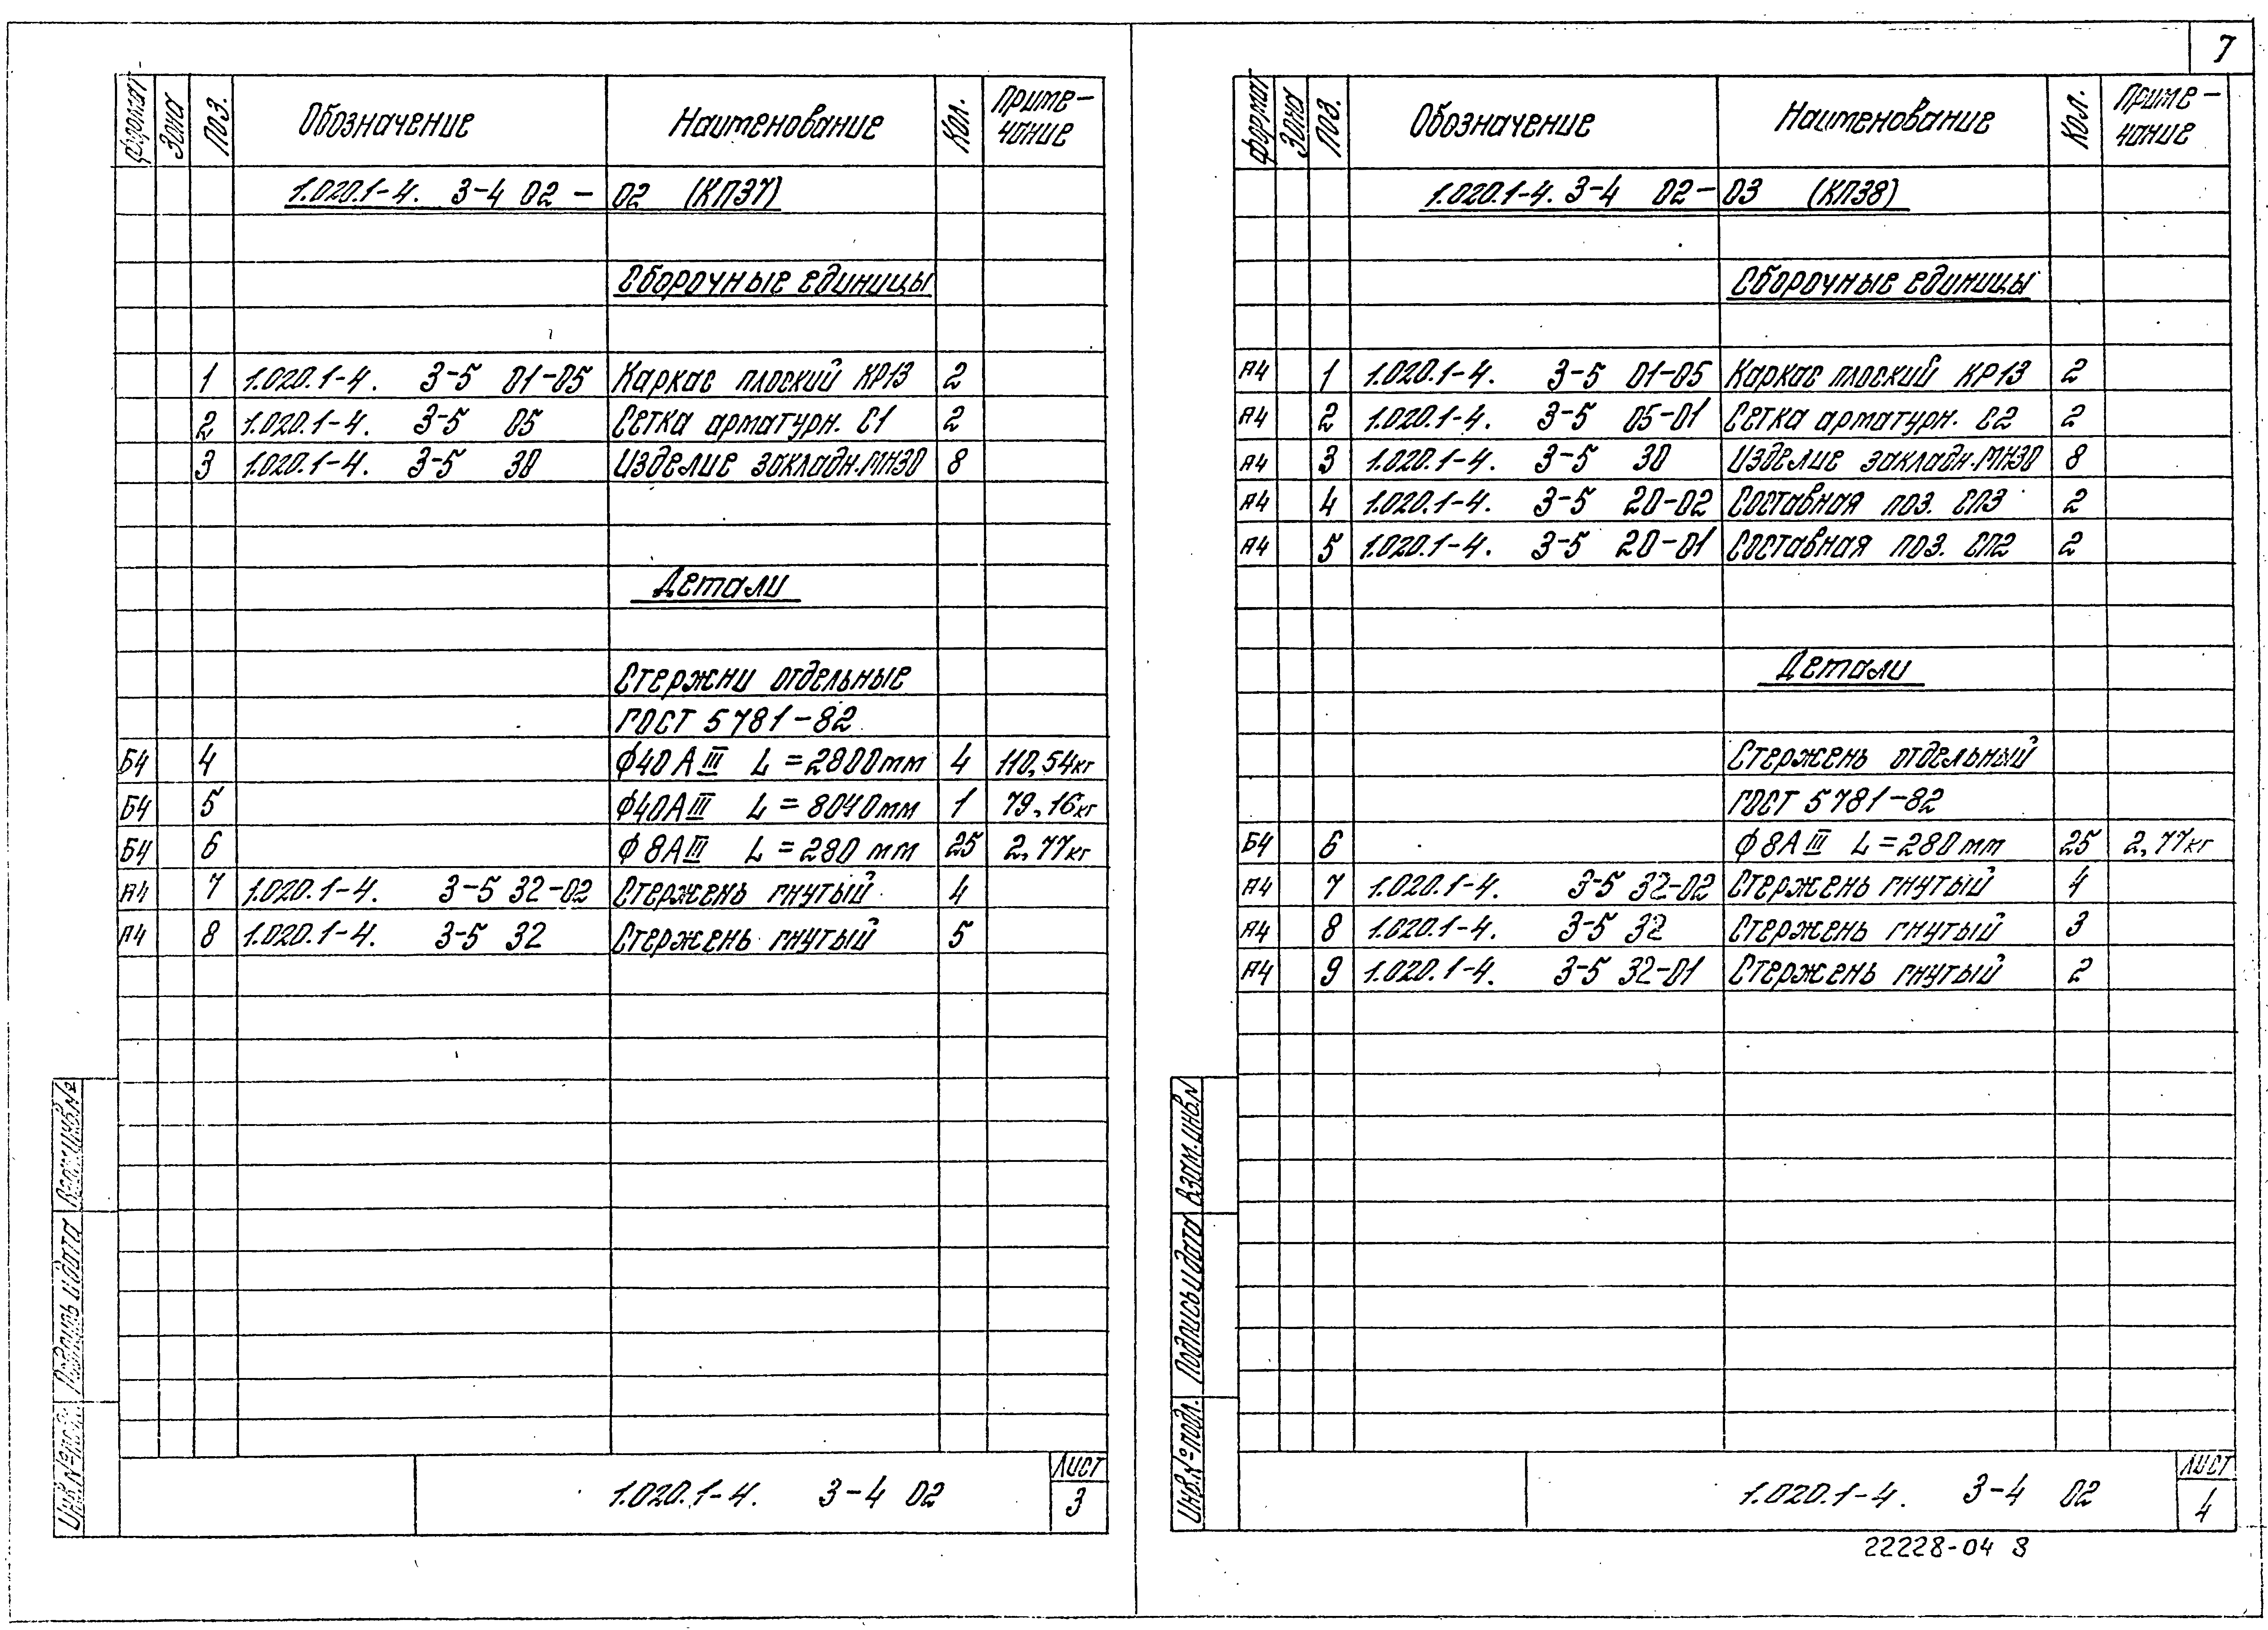 7
Формат Зона Поз. Обозначение Наименование Кол. Приме-
чание
1.020.1-4. 3-4 02 - 02 (КП37)
Сборочные единицы
1 1.020.1-4. 3-5 01-05 Каркас плоский КР13 2
2 1.020.1-4. 3-5 05 Сетка арматурн. С1 2
3 1.020.1-4. 3-5 30 Изделие закладн. МН30 8
Детали
Стержни отдельные
ГОСТ 5781-82
Б4 4 ф40АIII L=2800мм 4 110,54кг
Б4 5 ф40АIII L=8040мм 1 79,16кг
Б4 6 ф8АIII L=280мм 25 2,77кг
А4 7 1.020.1-4. 3-5 32-02 Стержень гнутый 4
А4 8 1.020.1-4. 3-5 32 Стержень гнутый 5
Инв.№подл. Подпись и дата Взам.инв.№
1.020.1-4. 3-4 02
Лист
3
Формат Зона Поз. Обозначение Наименование Кол. Приме-
чание
1.020.1-4. 3-4 02-03 (КП38)
Сборочные единицы
А4 1 1.020.1-4. 3-5 01-05 Каркас плоский КР13 2
А4 2 1.020.1-4. 3-5 05-01 Сетка арматурн. С2 2
А4 3 1.020.1-4. 3-5 30 Изделие закладн. МН30 8
А4 4 1.020.1-4. 3-5 20-02 Составная поз. СП3 2
А4 5 1.020.1-4. 3-5 20-01 Составная поз. СП2 2
Детали
Стержень отдельный
ГОСТ 5781-82
Б4 6 ф8АIII L=280мм 25 2,77кг
А4 7 1.020.1-4. 3-5 32-02 Стержень гнутый 4
А4 8 1.020.1-4. 3-5 32 Стержень гнутый 3
А4 9 1.020.1-4. 3-5 32-01 Стержень гнутый 2
Инв.№подл. Подпись и дата Взам.инв.№
1.020.1-4. 3-4 02
Лист
4
22228-04 8